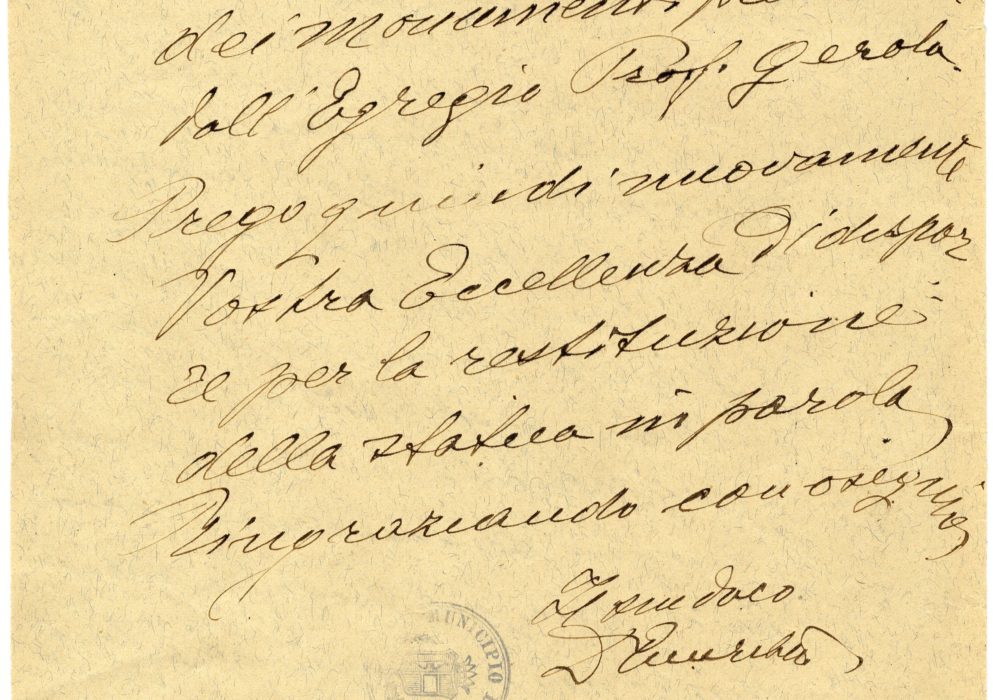 dei monumenti
dall'Egregio Prof. Gerola.
Prego quindi nuovamente
Vostra Eccellenza di dispor
re per la restituzione
della statua in parola
Ringraziando con osequio
Il sindaco
MUNICIPIO